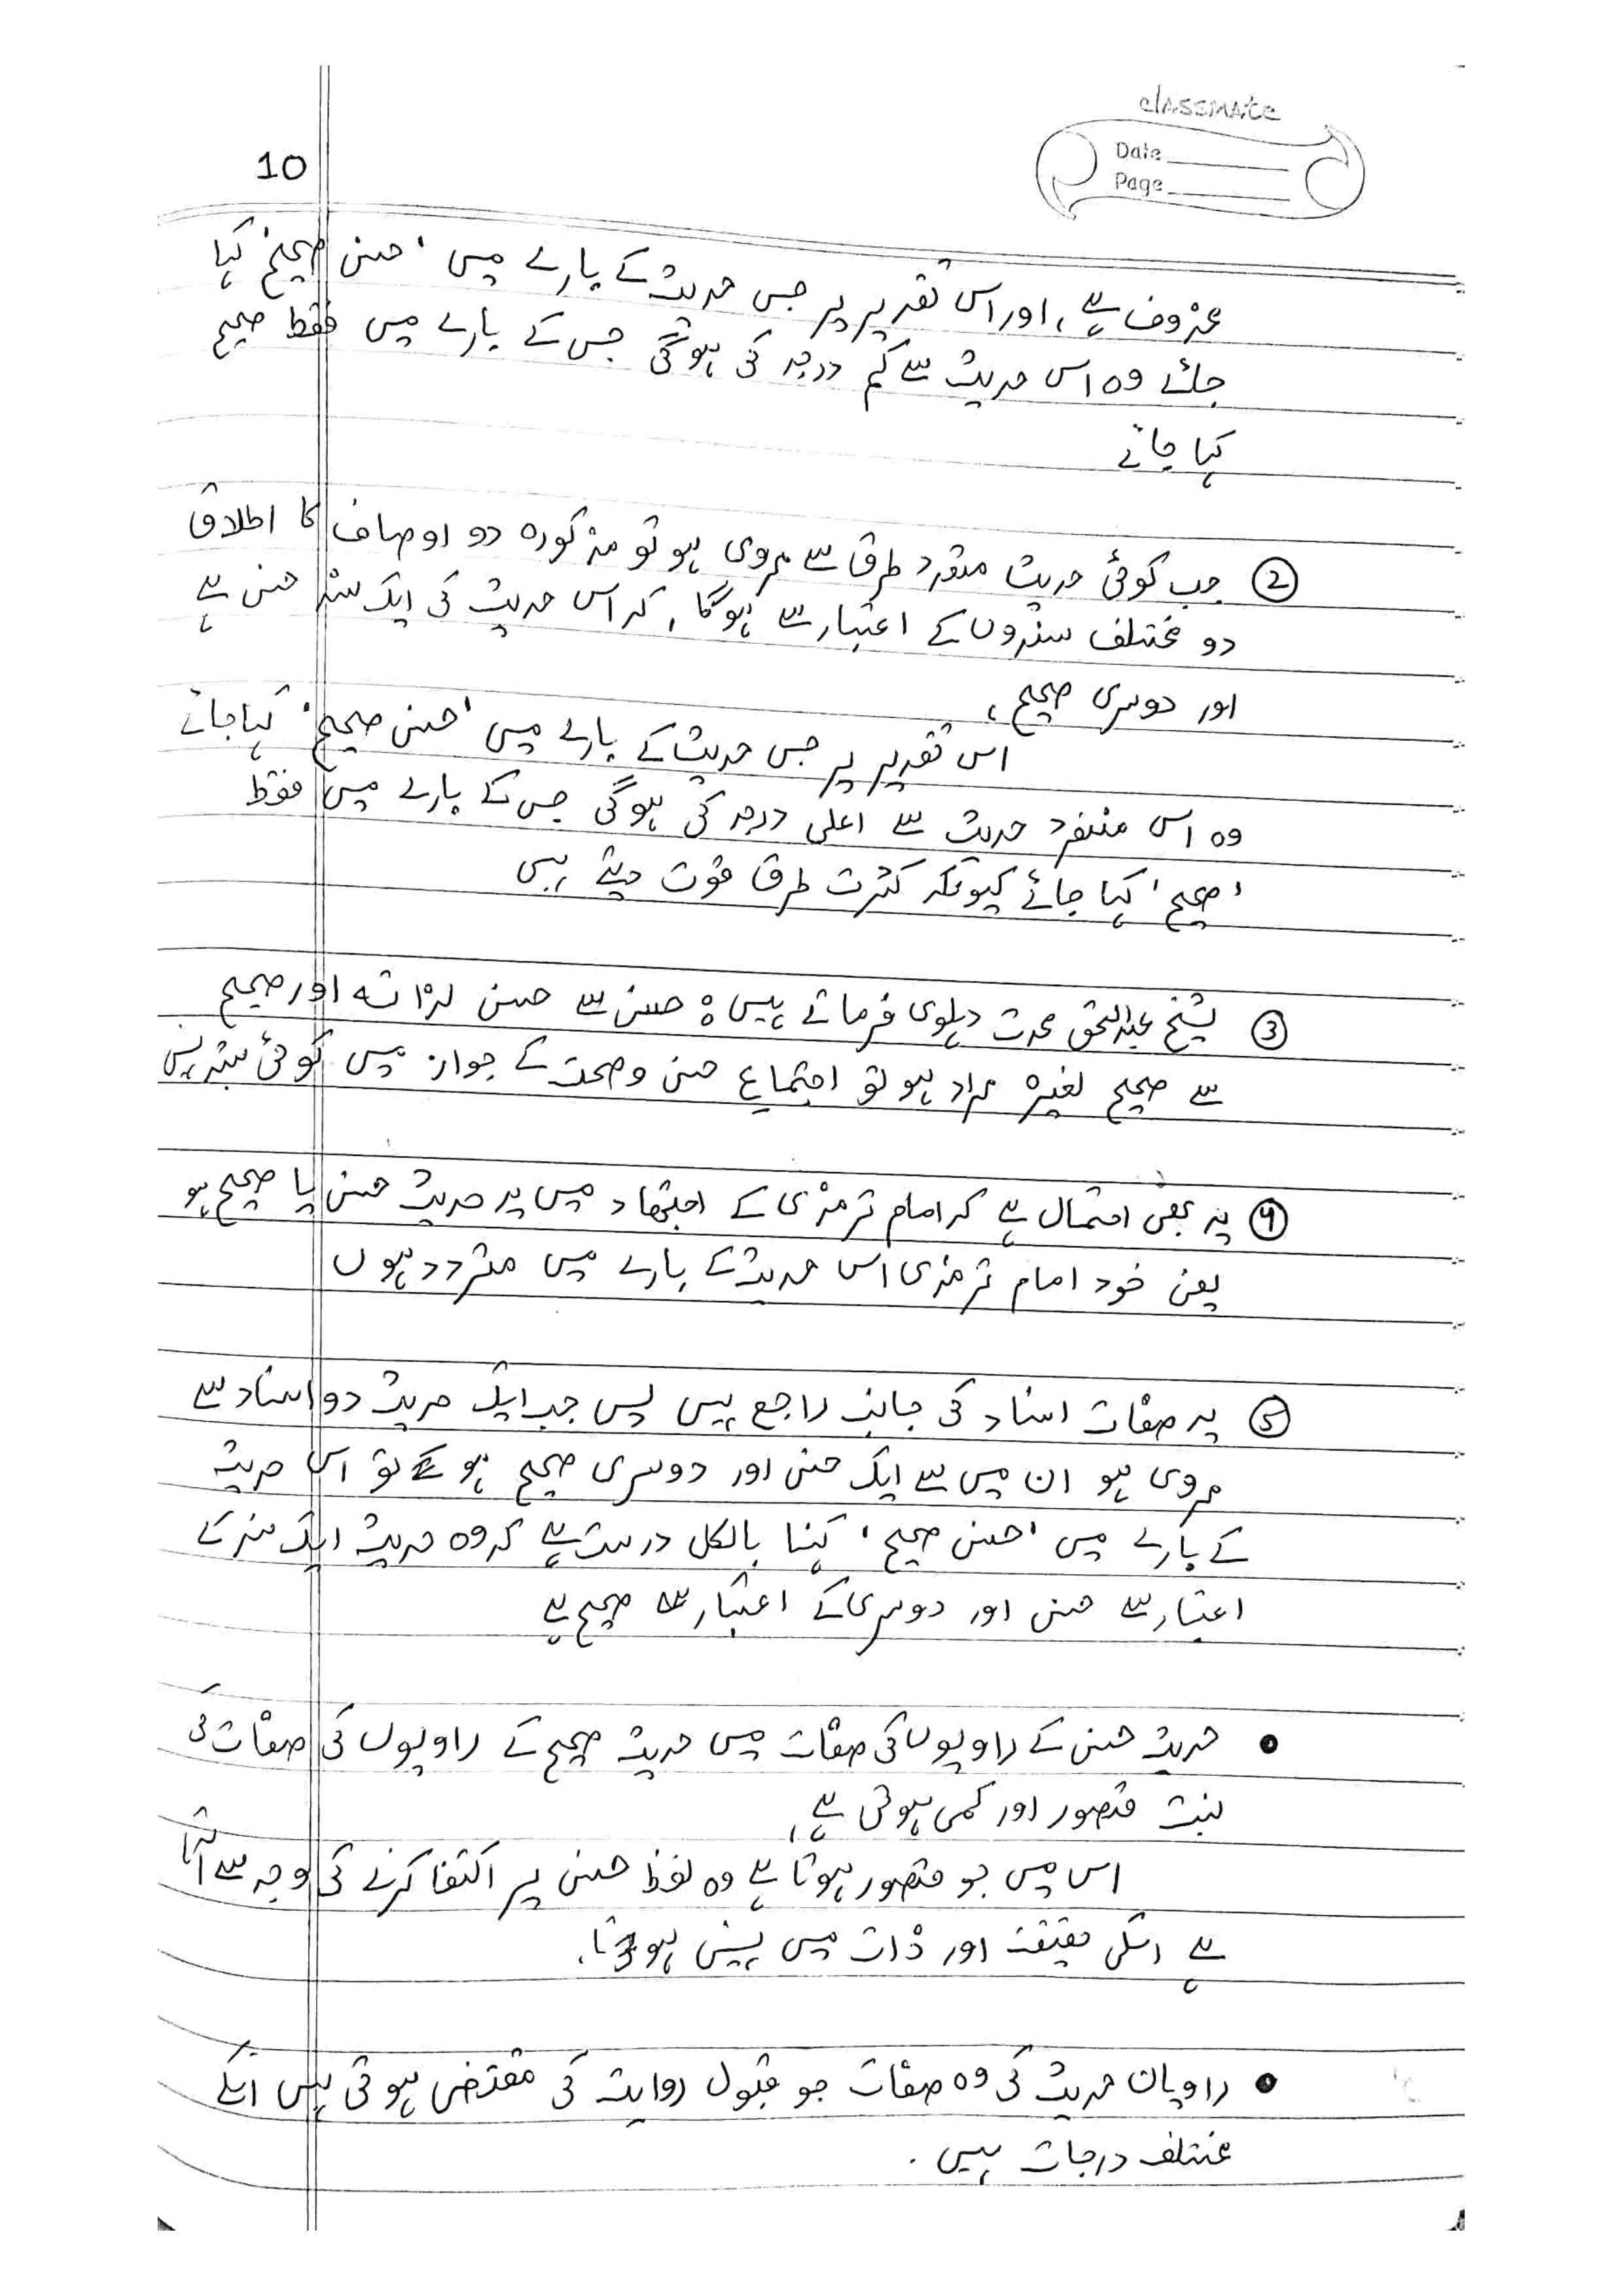 classmate
Date
Page
10
محذوف ہے، اور اس تقدیر پر جس حدیث کے بارے میں 'حسن صحیح' کہا
جائے وہ اس حدیث سے کم درجہ کی ہوگی جس کے بارے میں فقط صحیح
کہا جائے
② جب کوئی حدیث متعدد طرق سے مروی ہو تو مذکورہ دو اوصاف کا اطلاق
دو مختلف سندوں کے اعتبار سے ہوگا، کہ اس حدیث کی ایک سند حسن ہے
اور دوسری صحیح،
اس تقدیر پر جس حدیث کے بارے میں 'حسن صحیح' کہا جائے
وہ اس منفرد حدیث سے اعلی درجہ کی ہوگی جس کے بارے میں فقط
'صحیح' کہا جائے کیونکہ کثرت طرق قوت دیتے ہیں
③ شیخ عبدالحق محدث دہلوی فرماتے ہیں: حسن سے حسن لذاتہ اور صحیح
سے صحیح لغیرہ مراد ہو تو اجتماع حسن وصحت کے جواز میں کوئی شبہ نہیں
④ یہ بھی احتمال ہے کہ امام ترمذی کے اجتھاد میں یہ حدیث حسن یا صحیح ہو
یعنی خود امام ترمذی اس حدیث کے بارے میں متردد ہوں
⑤ یہ صفات اسناد کی جانب راجع ہیں پس جب ایک حدیث دو اسناد سے
مروی ہو ان میں سے ایک حسن اور دوسری صحیح ہو تو اس حدیث
کے بارے میں 'حسن صحیح' کہنا بالکل درست ہے کہ وہ حدیث ایک سند کے
اعتبار سے حسن اور دوسری کے اعتبار سے صحیح ہے
• حدیث حسن کے راویوں کی صفات میں حدیث صحیح کے راویوں کی صفات کی
بنسبت قصور اور کمی ہوتی ہے،
اس میں جو قصور ہوتا ہے وہ لفظ حسن پر اکتفا کرنے کی وجہ سے آتا
ہے اسکی حقیقت اور ذات میں نہیں ہوتا.
• راویان حدیث کی وہ صفات جو قبول روایت کی مقتضی ہوتی ہیں انکے
مختلف درجات ہیں.